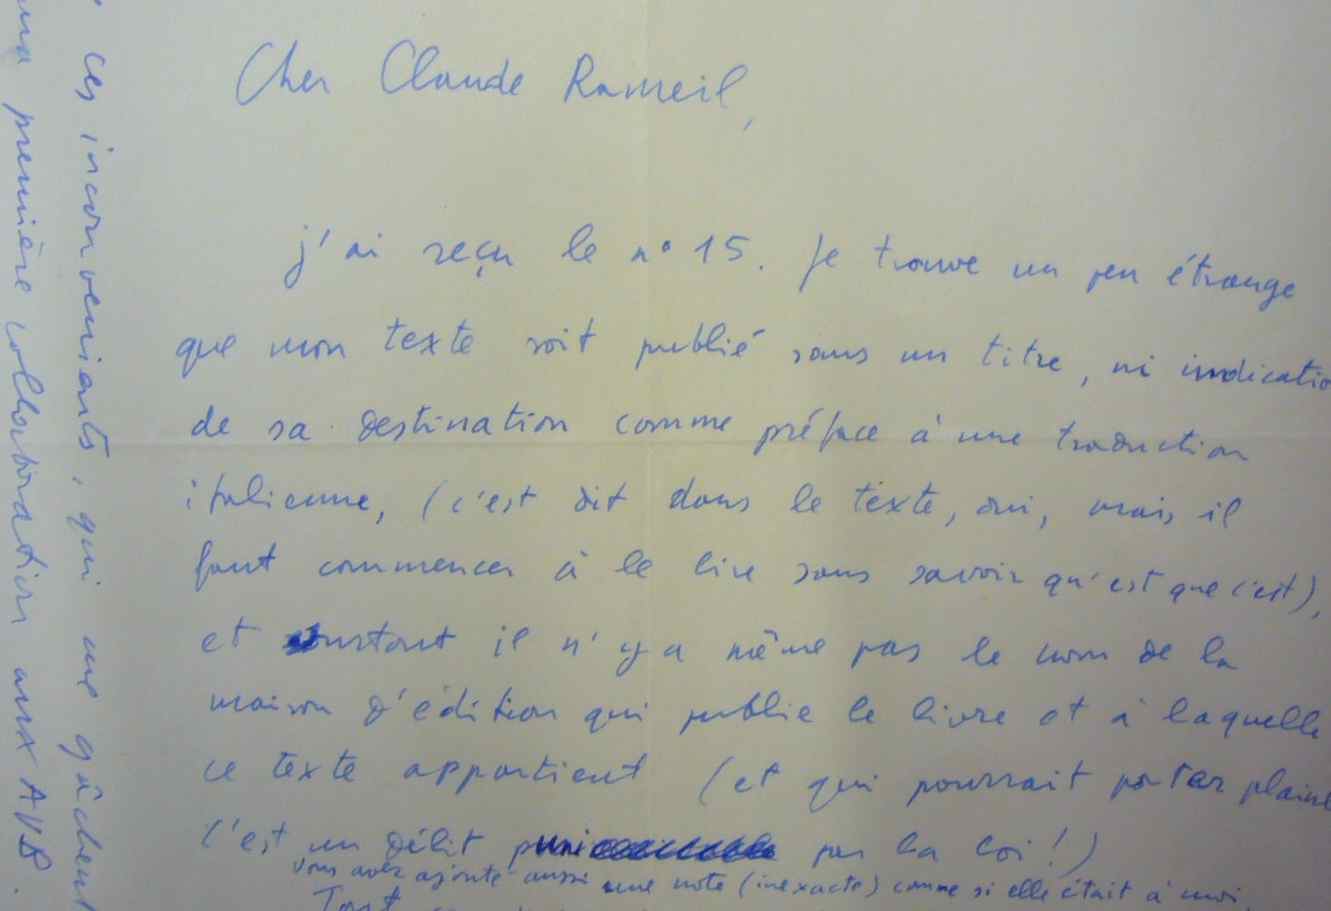 Cher Claude Rameil,
j'ai reçu le n° 15. Je trouve un peu étrange
que mon texte soit publié sans un titre, ni indicatio
de sa destination comme préface à une traduction
italienne, (c'est dit dans le texte, oui, mais il
faut commencer à le lire sans savoir qu'est que c'est),
et surtout il n'y a même pas le nom de la
maison d'édition qui publie le livre et à laquelle
ce texte appartient (et qui pourrait porter plaint
c'est un délit puni par la loi!)
Vous avez ajouté aussi une note (inexacte) comme si elle était à moi.
Tout
ces inconvenients, qui me gâchent
ma première collaboration aux AVB.